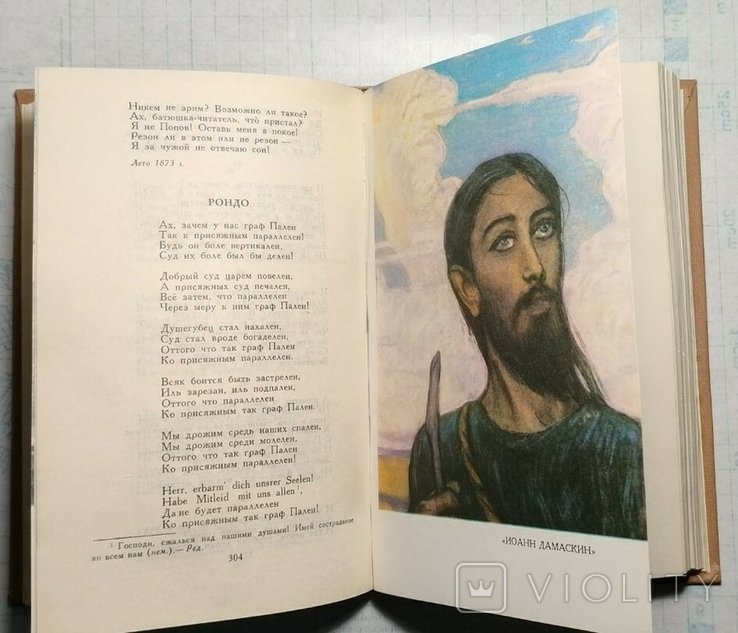 Никем не зрим? Возможно ли такое?
Ах, батюшка-читатель, что́ пристал?
Я не Попов! Оставь меня в покое!
Резон ли в этом или не резон —
Я за чужой не отвечаю сон!
Лето 1873 г.
РОНДО
Ах, зачем у нас граф Пален
Так к присяжным параллелен!
Будь он боле вертикален,
Суд их боле был бы делен!
Добрый суд царем повелен,
А присяжных суд печален,
Всё затем, что параллелен
Через меру к ним граф Пален!
Душегубец стал нахален,
Суд стал вроде богаделен,
Оттого что так граф Пален
Ко присяжным параллелен.
Всяк боится быть застрелен,
Иль зарезан, иль подпален,
Оттого что параллелен
Ко присяжным так граф Пален.
Мы дрожим средь наших спален,
Мы дрожим среди молелен,
Оттого что так граф Пален
Ко присяжным параллелен!
Herr, erbarm' dich unsrer Seelen!
Habe Mitleid mit uns allen¹,
Да не будет параллелен
Ко присяжным так граф Пален!
¹ Господи, сжалься над нашими душами! Имей сострадание
ко всем нам (нем.).— Ред.
304
«ИОАНН ДАМАСКИН»
VIOLITY
25cm
20cm